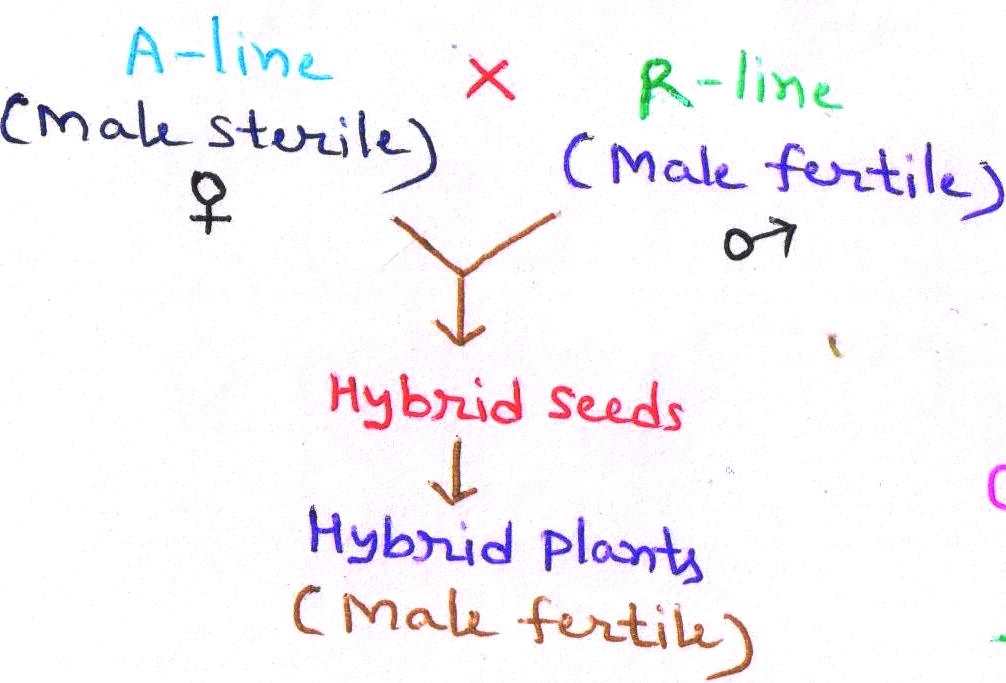 A-line × R-line
(Male sterile) (Male fertile)
♀ ♂
Hybrid seeds
Hybrid plants
(Male fertile)